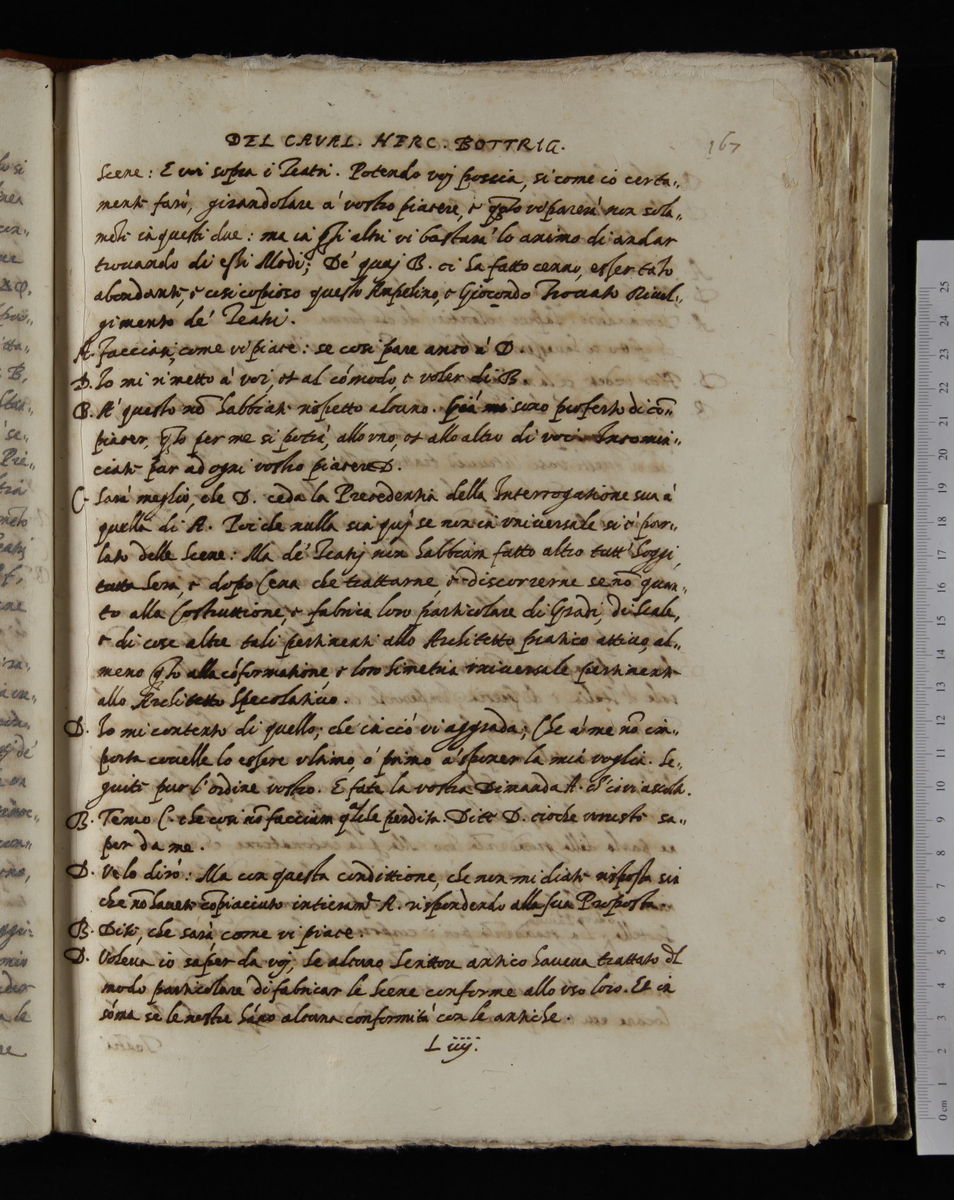 DEL CAVAL. HERC. BOTTRIG. 167
Scene: E voi sopra i Teatri. Potendo voj poscia, si come io certa„
mente farò, girandolare à vostro piacere, e q̃to vi parerà non sola„
mẽte in questi due: ma in q̃ti altri vi bastarà lo animo di andar
trovando di essi Modi; De' quaj B. ci ha fatto cenno, esser tãto
abondante, e così copioso questo Ampelino, e Giocondo Trovato Rivol„
gimento de' Teatri.
A. Facciasi, come vi piace: se così pare anco à D.
D. Io mi rimetto à voi, et al cómodo, e voler di B.
B. A' questo nõ habbiate rispetto alcuno. Già mi sono proferto di cõ„
piacer, q̃to per me si potrà, allo uno, et allo altro di voi. Incomin„
ciate pur ad ogni vostro piacere D.
C. Sarà meglio, che D. ceda la Precedentia della Interrogatione sua à
quella di A. Poi che nulla sin quj se non in universale si è par„
lato delle Scene: Ma de' Teatrj non habbiam fatto altro tutt' hoggi,
tutta sera, e dopo Cena che trattarne, e discorrerne se nõ quan„
to alla Costruttione, e fabrica loro particolare di Gradi, di Scale,
e di cose altre tali pertinenti allo Architetto pratico attivo, al„
meno q̃to alla cóformatione, e loro simetria universale pertinente
allo Architetto Specolativo.
D. Io mi contento di quello, che in ciò vi aggrada; Che à me nõ im„
porta covelle lo essere ultimo, ò primo à sponer la mia voglia. Se„
guite pur l'ordine vostro. E fate la vostra Dimanda A. ch'io vi ascolto.
B. Temo C. che così nõ facciam qualche perdita. Dite D. cioche voreste sa„
per da me.
D. Ve lo dirò: Ma con questa condittione, che non mi diate risposta sin
che nõ havete cõpiaciuto intieramẽte A. rispondendo alla sua Proposta.
B. Dite, che sarà come vi piace.
D. Voleva io saper da voj, se alcuno Scrittor antico haveva trattato dl
modo particolare di fabricar le Scene conforme allo uso loro. Et in
sóma se le nostre hãno alcuna conformità con le antiche.
L iiij.